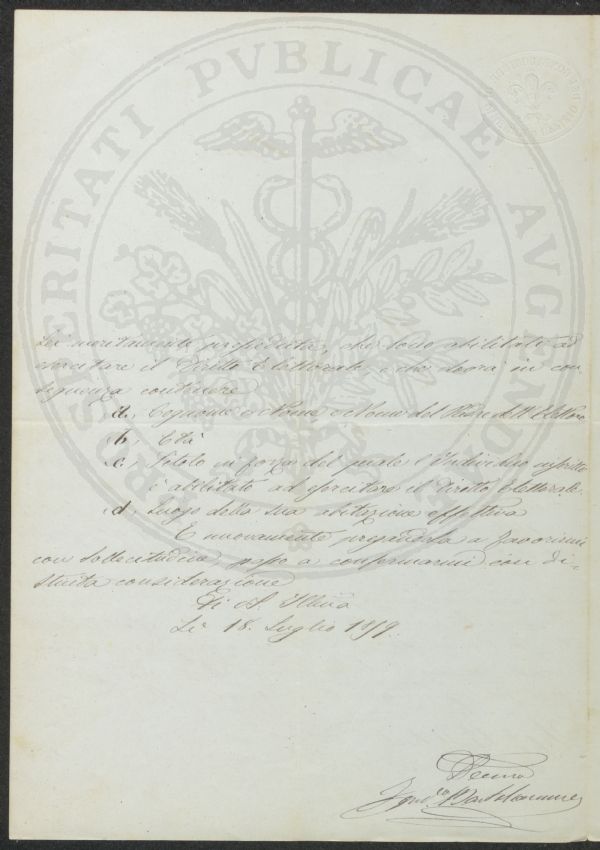 PROSPERITATI PVBLICAE AVGENDAE
Lei meritamente presieduta, che sono abilitati ad
esercitare il Diritto Elettorale, e che dovrà in con-
seguenza contenere
a, Cognome e Nome, e Nome del Padre dell' Elettore
b, Età
c, Titolo in forza del quale l' Individuo
è abilitato ad esercitare il Diritto Elettorale.
d, Luogo della sua abitazione effettiva
E nuovamente pregandola a favorirmi
con sollecitudine, passo a confermarmi con di-
stinta considerazione
Di
Li 18. Luglio 1859.